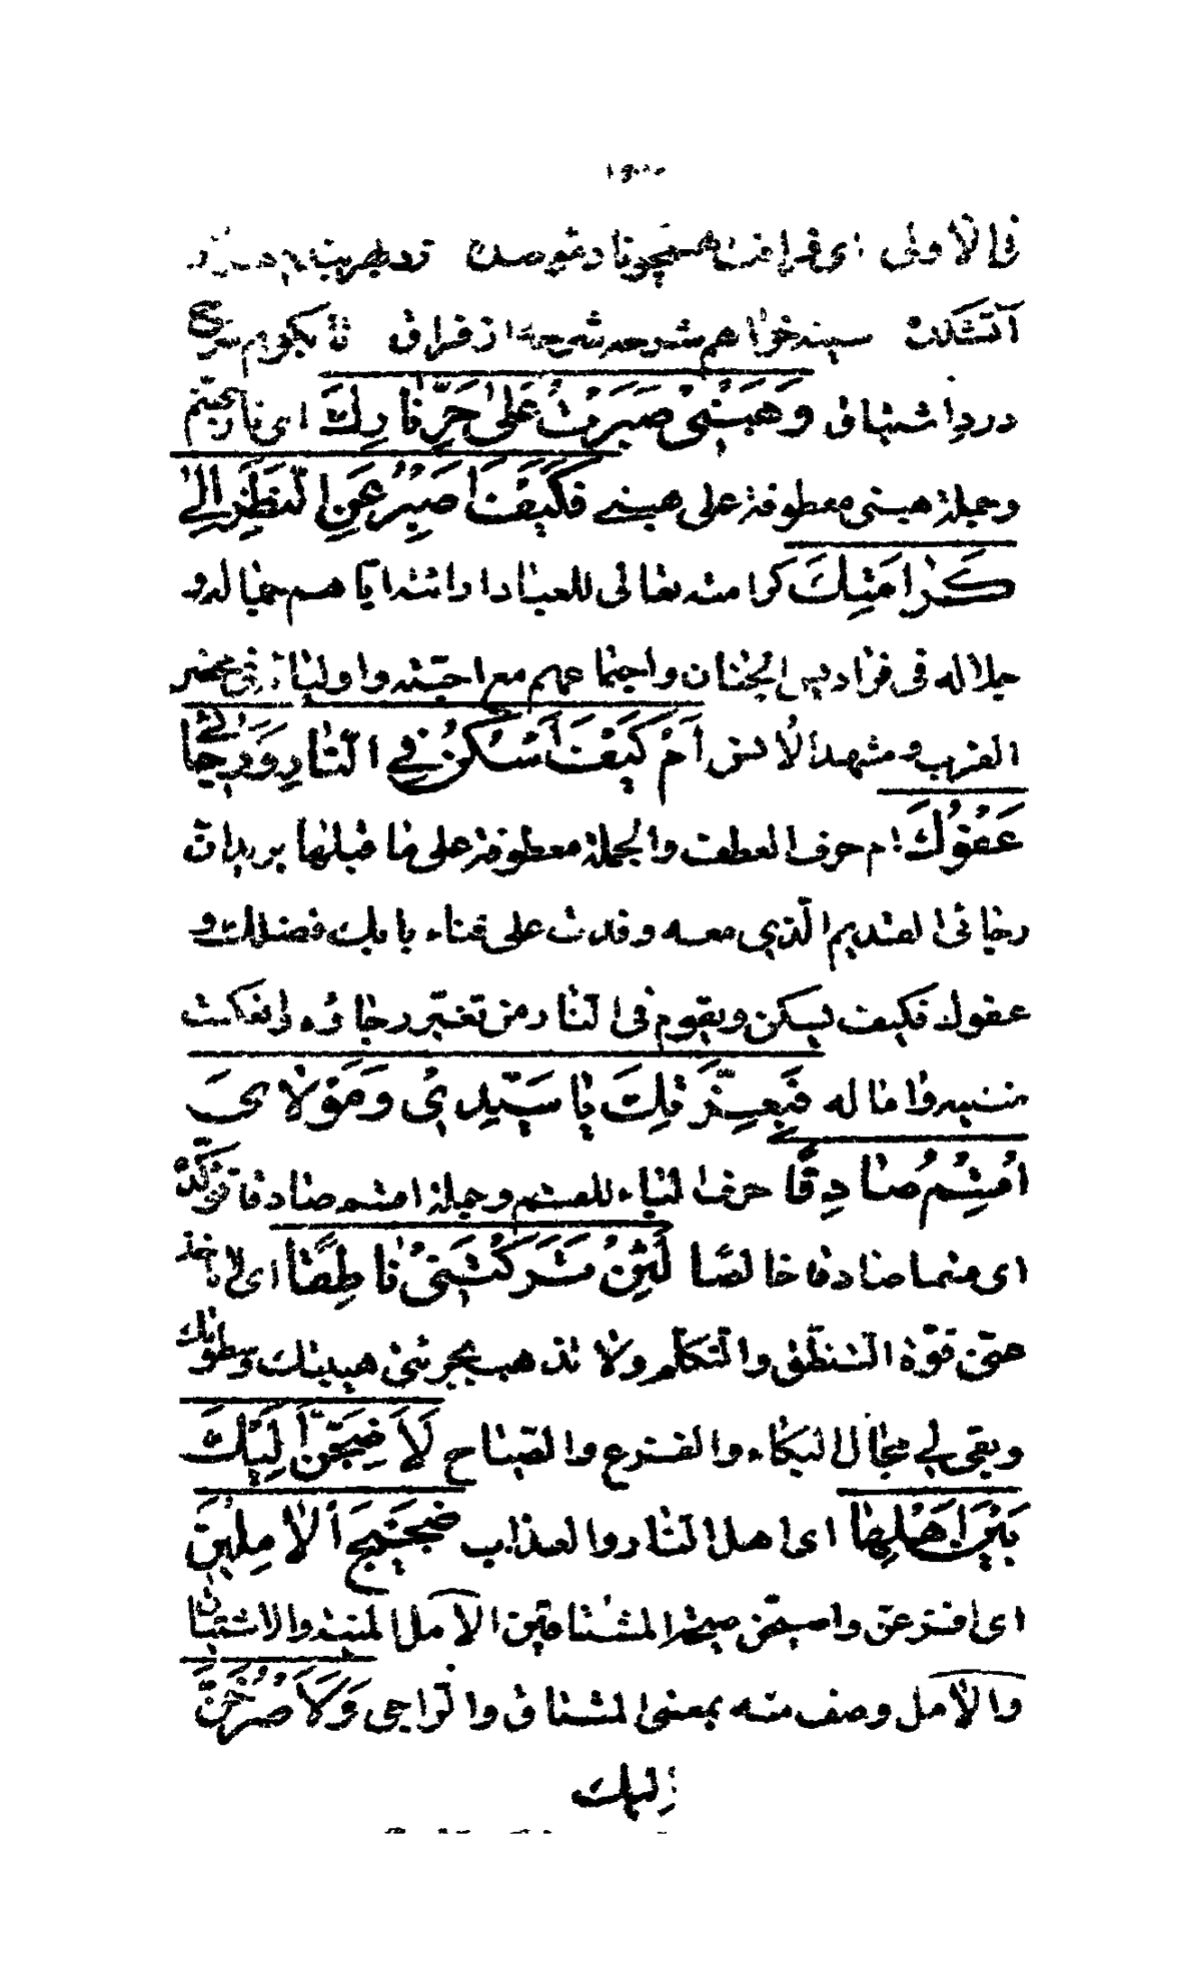 فی الأولی ای فراقت همچو نار موصدة
آتشکده سینه خواهم شرحه شرحه از فراق تا بگویم شرح
درد اشتیاق وَهَبْنِی صَبَرْتُ عَلیٰ حَرِّ نٰارِكَ ای نار جهنّم
وجملة هبنی معطوفة علی هبنی فَكَیْفَ اَصْبِرُ عَنِ النَّظَرِ اِلیٰ
كَرٰامَتِكَ كرامته تعالی للعباد اراشته ایّاهم جمال له و
جلاله فی فرادیس الجنان واجتماعهم مع احبّته واولیائه فی محضر
القرب ومشهد الأنس اَمْ كَیْفَ اَسْكُنُ فِی النّٰارِ وَرَجٰائی
عَفْوُكَ ام حرف العطف والجملة معطوفة علی ما قبلها یرید انّ
رجائی القدیم الّذی معه وفدت علی فناء بابك فضلك و
عفوك فكیف یسكن ویقوم فی النّار من تغیّر رجاؤه وانعكست
منیته واماله فَبِعِزَّتِكَ یٰا سَیِّدِی وَمَوْلایَ
اُقْسِمُ صٰادِقًا حرف الباء للقسم وجملة اقسم صادقا تؤكّده
ای قسما صادقا خالصًا لَئِنْ تَرَكْتَنِی نٰاطِقًا ای لا تأخذ
منّی قوّة التنطّق والتكلّم ولا تذهب بجرئتی هیبتك وسطوتك
وبقی لی مجال البكاء والفزع والصّیاح لَاَضِجَّنَّ اِلَیْكَ
بَیْنَ اَهْلِهٰا ای اهل النّار والعذاب ضَجیجَ الْاٰمِلینَ
ای افزعنّ واصیحنّ صیحة المشتاقین الأمل المنیة والاشتیاق
والأمل وصف منه بمعنی المشتاق والرّاجی وَلَاَصْرُخَنَّ
الیك